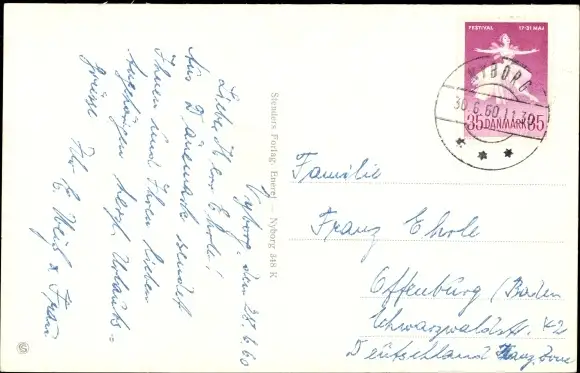 Nyborg, den 28.6.60
Lieber Herr Ehrle!
Aus Dänemark sendet
Ihnen und Ihren lieben
Angehörigen herzl. Urlaubs=
grüsse
Ihr E. Weiß u. Frau
Stenders Forlag, Eneret — Nyborg 348 K
FESTIVAL 17-31 MAJ
NYBORG
30.6.60.11-
35 DANMARK 35
Familie
Franz Ehrle
Offenburg / Baden
Schwarzwaldstr.
Deutschland Franz. Zone